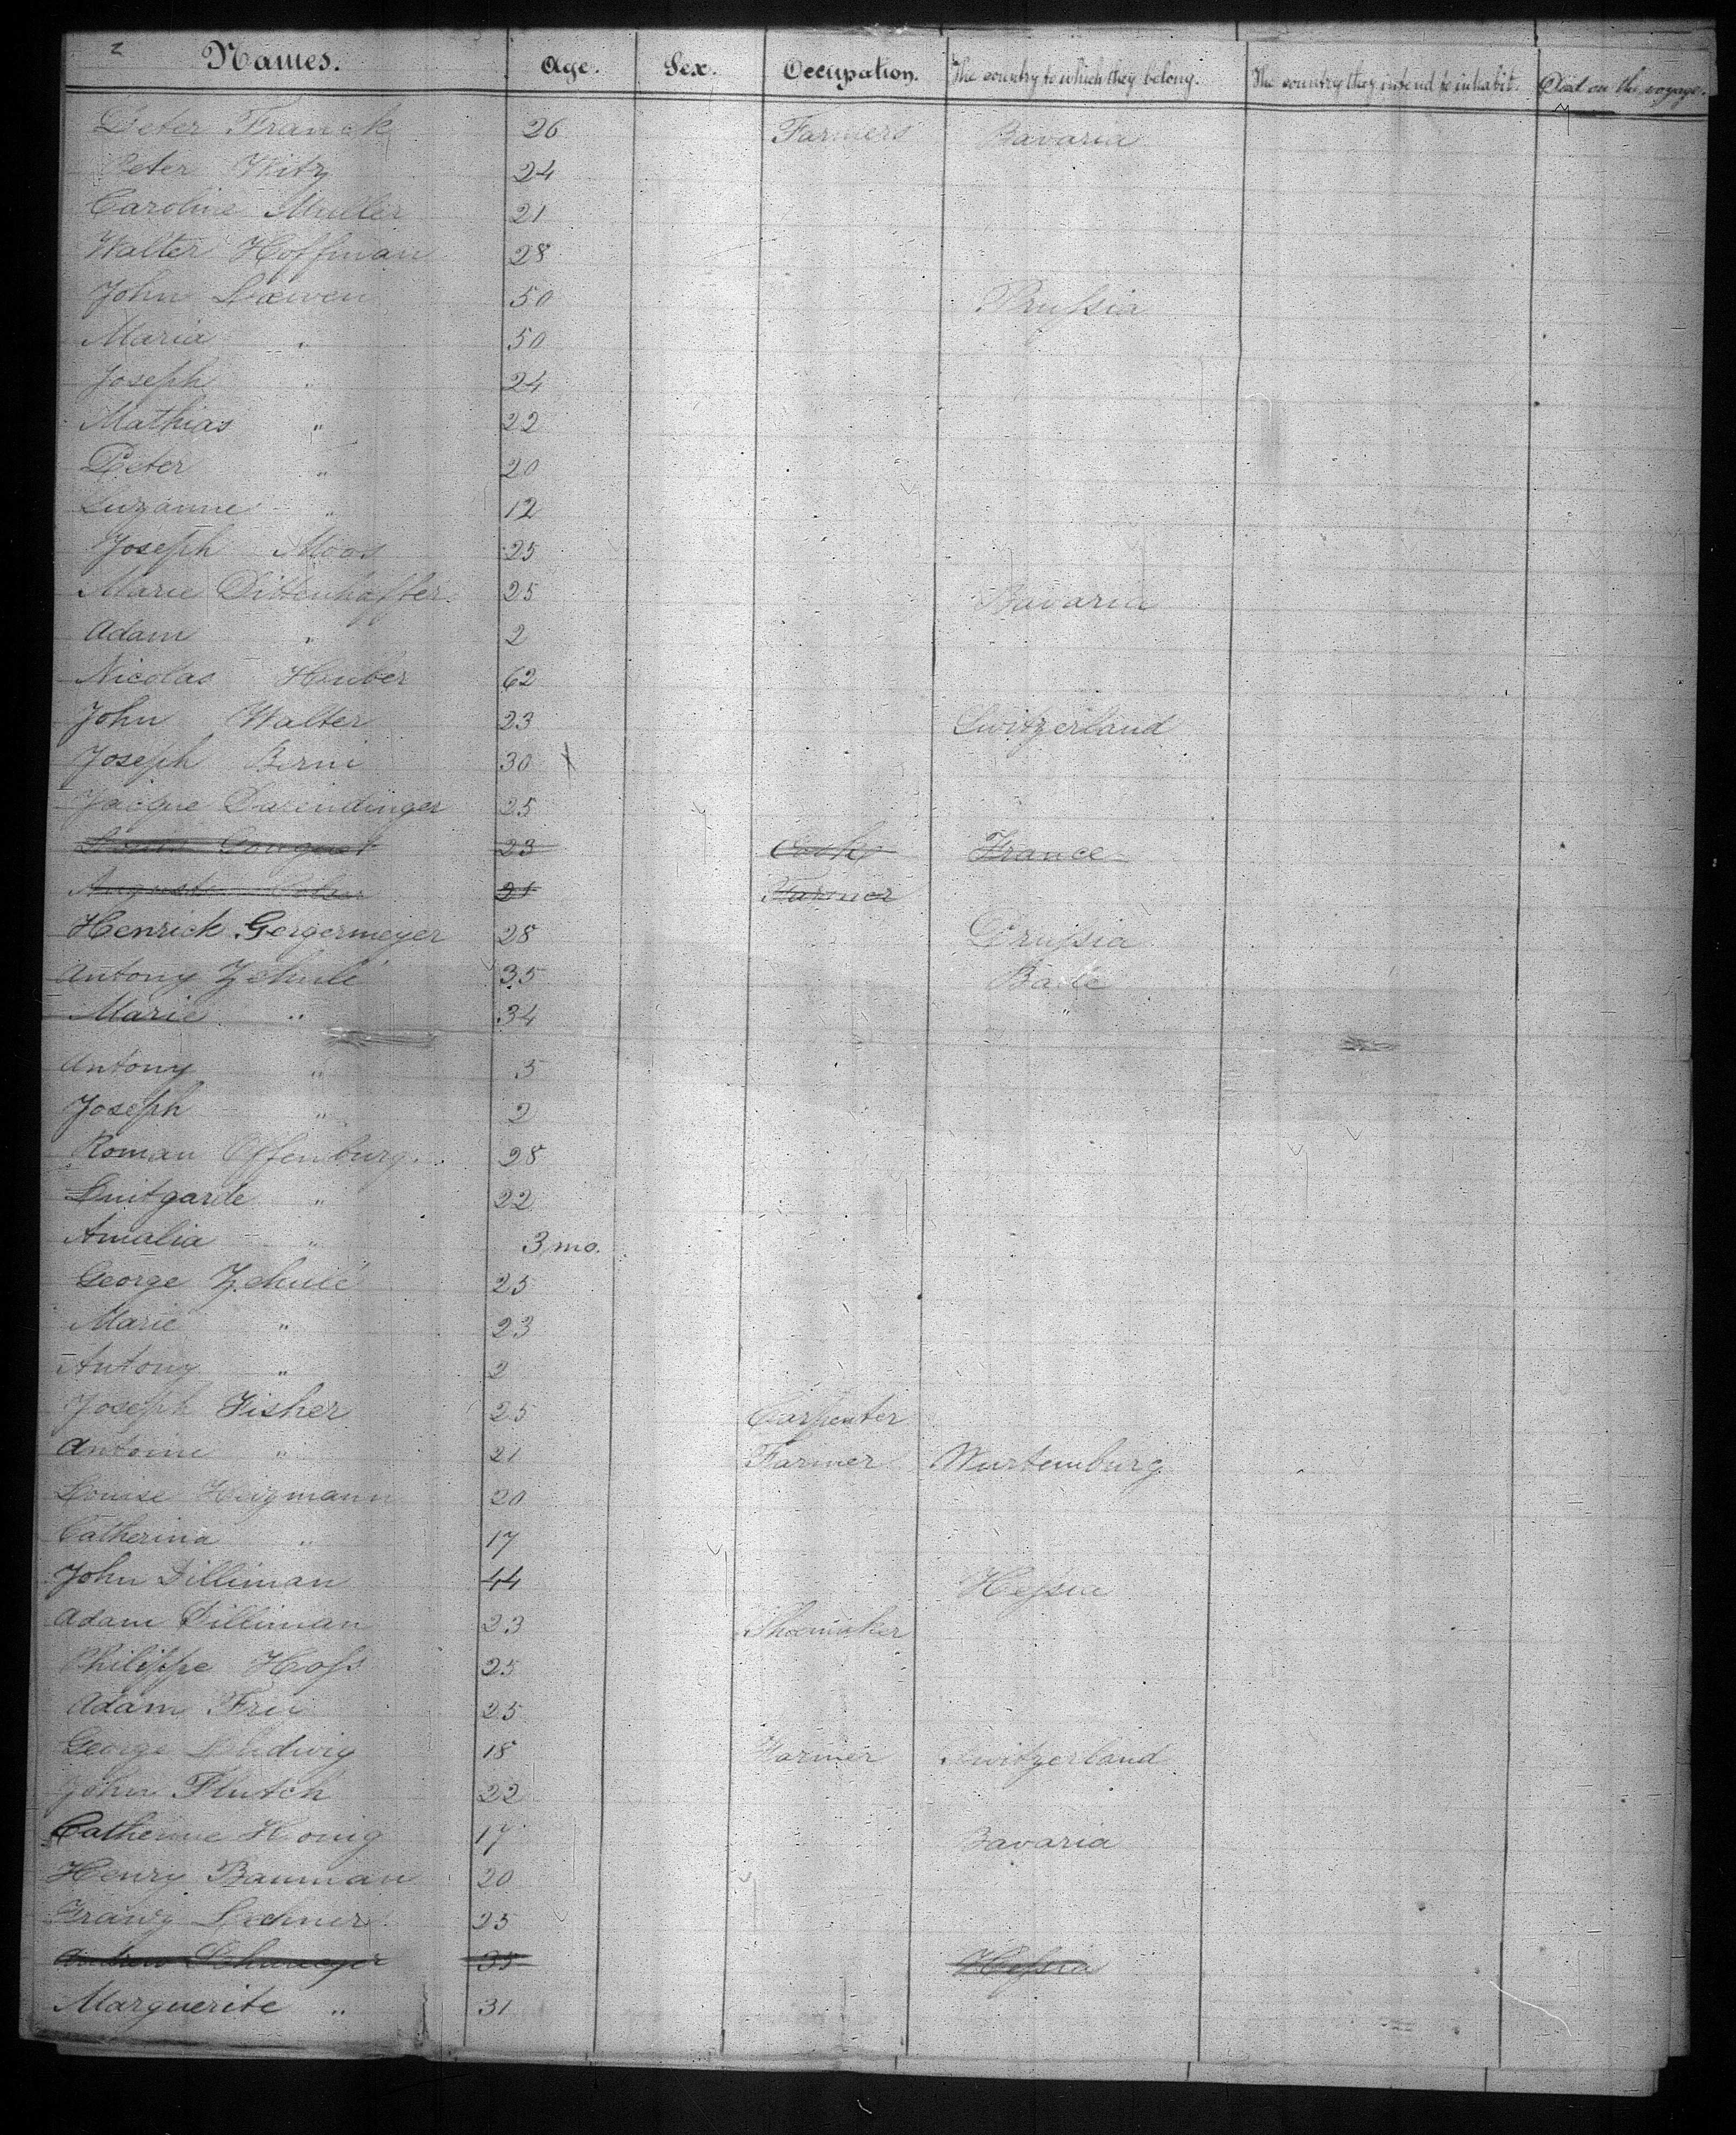 2
Names. Age. Sex. Occupation. The country to which they belong. The country they intend to inhabit. Died on the voyage.
Peter Franck 26 Farmers Bavaria
Peter Witz 24
Caroline Muller 21
Walter Hoffman 28
John Loewen 50 Prussia
Maria " 50
Joseph " 24
Mathias " 22
Peter " 20
Suzanne " 12
Joseph Moos 25
Marie Dittenhoffer 25 Bavaria
Adam " 2
Nicolas Huber 62
John Walter 23 Switzerland
Joseph Berni 30
Jacque Darendinger 25
Louis Conquet 23 Cook France
August 21 Farmer
Henrick Gergermeyer 28 Prussia
Antony Zchulé 35 Bade
Marie " 34 "
Antony " 5
Joseph " 2
Roman Offenburg. 28
Luitgarde " 22
Amalia " 3 mo.
George Zchulé 25
Marie " 23
Antony " 2
Joseph Fisher 25 Carpenter
Antoine " 21 Farmer Wurtemburg
Louise Hegmann 20
Catherina " 17
John Dilliman 44 Hessia
Adam Dilliman 23 Shoemaker
Philippe Hoss 25
Adam Frei 25
George Ludwig 18 Farmer Switzerland
John Flutch 22
Catherine Honig 17 Bavaria
Henry Bauman 20
Franz Lechner 25
Andrew 35 Hessia
Marguerite " 31